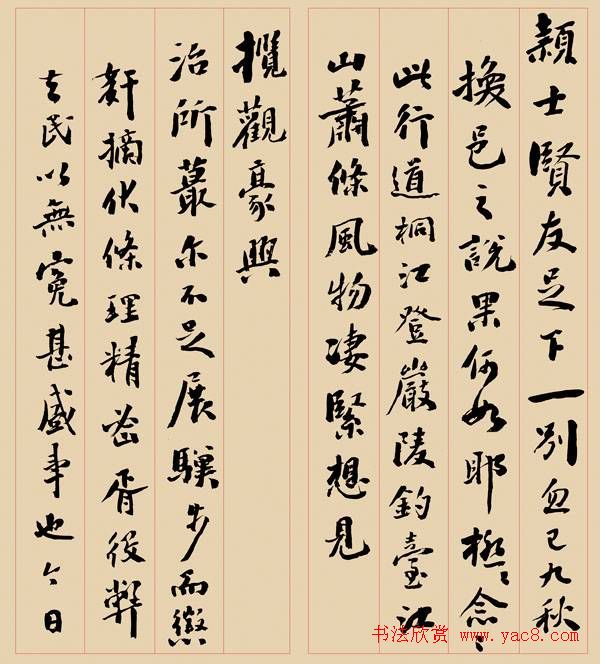 穎士賢友足下一別忽已九秋
換邑之說果何如耶極〻念〻
此行道桐江登嚴陵釣臺江
山蕭條風物凄緊想見
攬觀豪興
治所蕞尔不足展驥步而懲
奸摘伏條理精密胥役弊
去民以無冤甚盛事也今日
书法欣赏 www.yac8.com